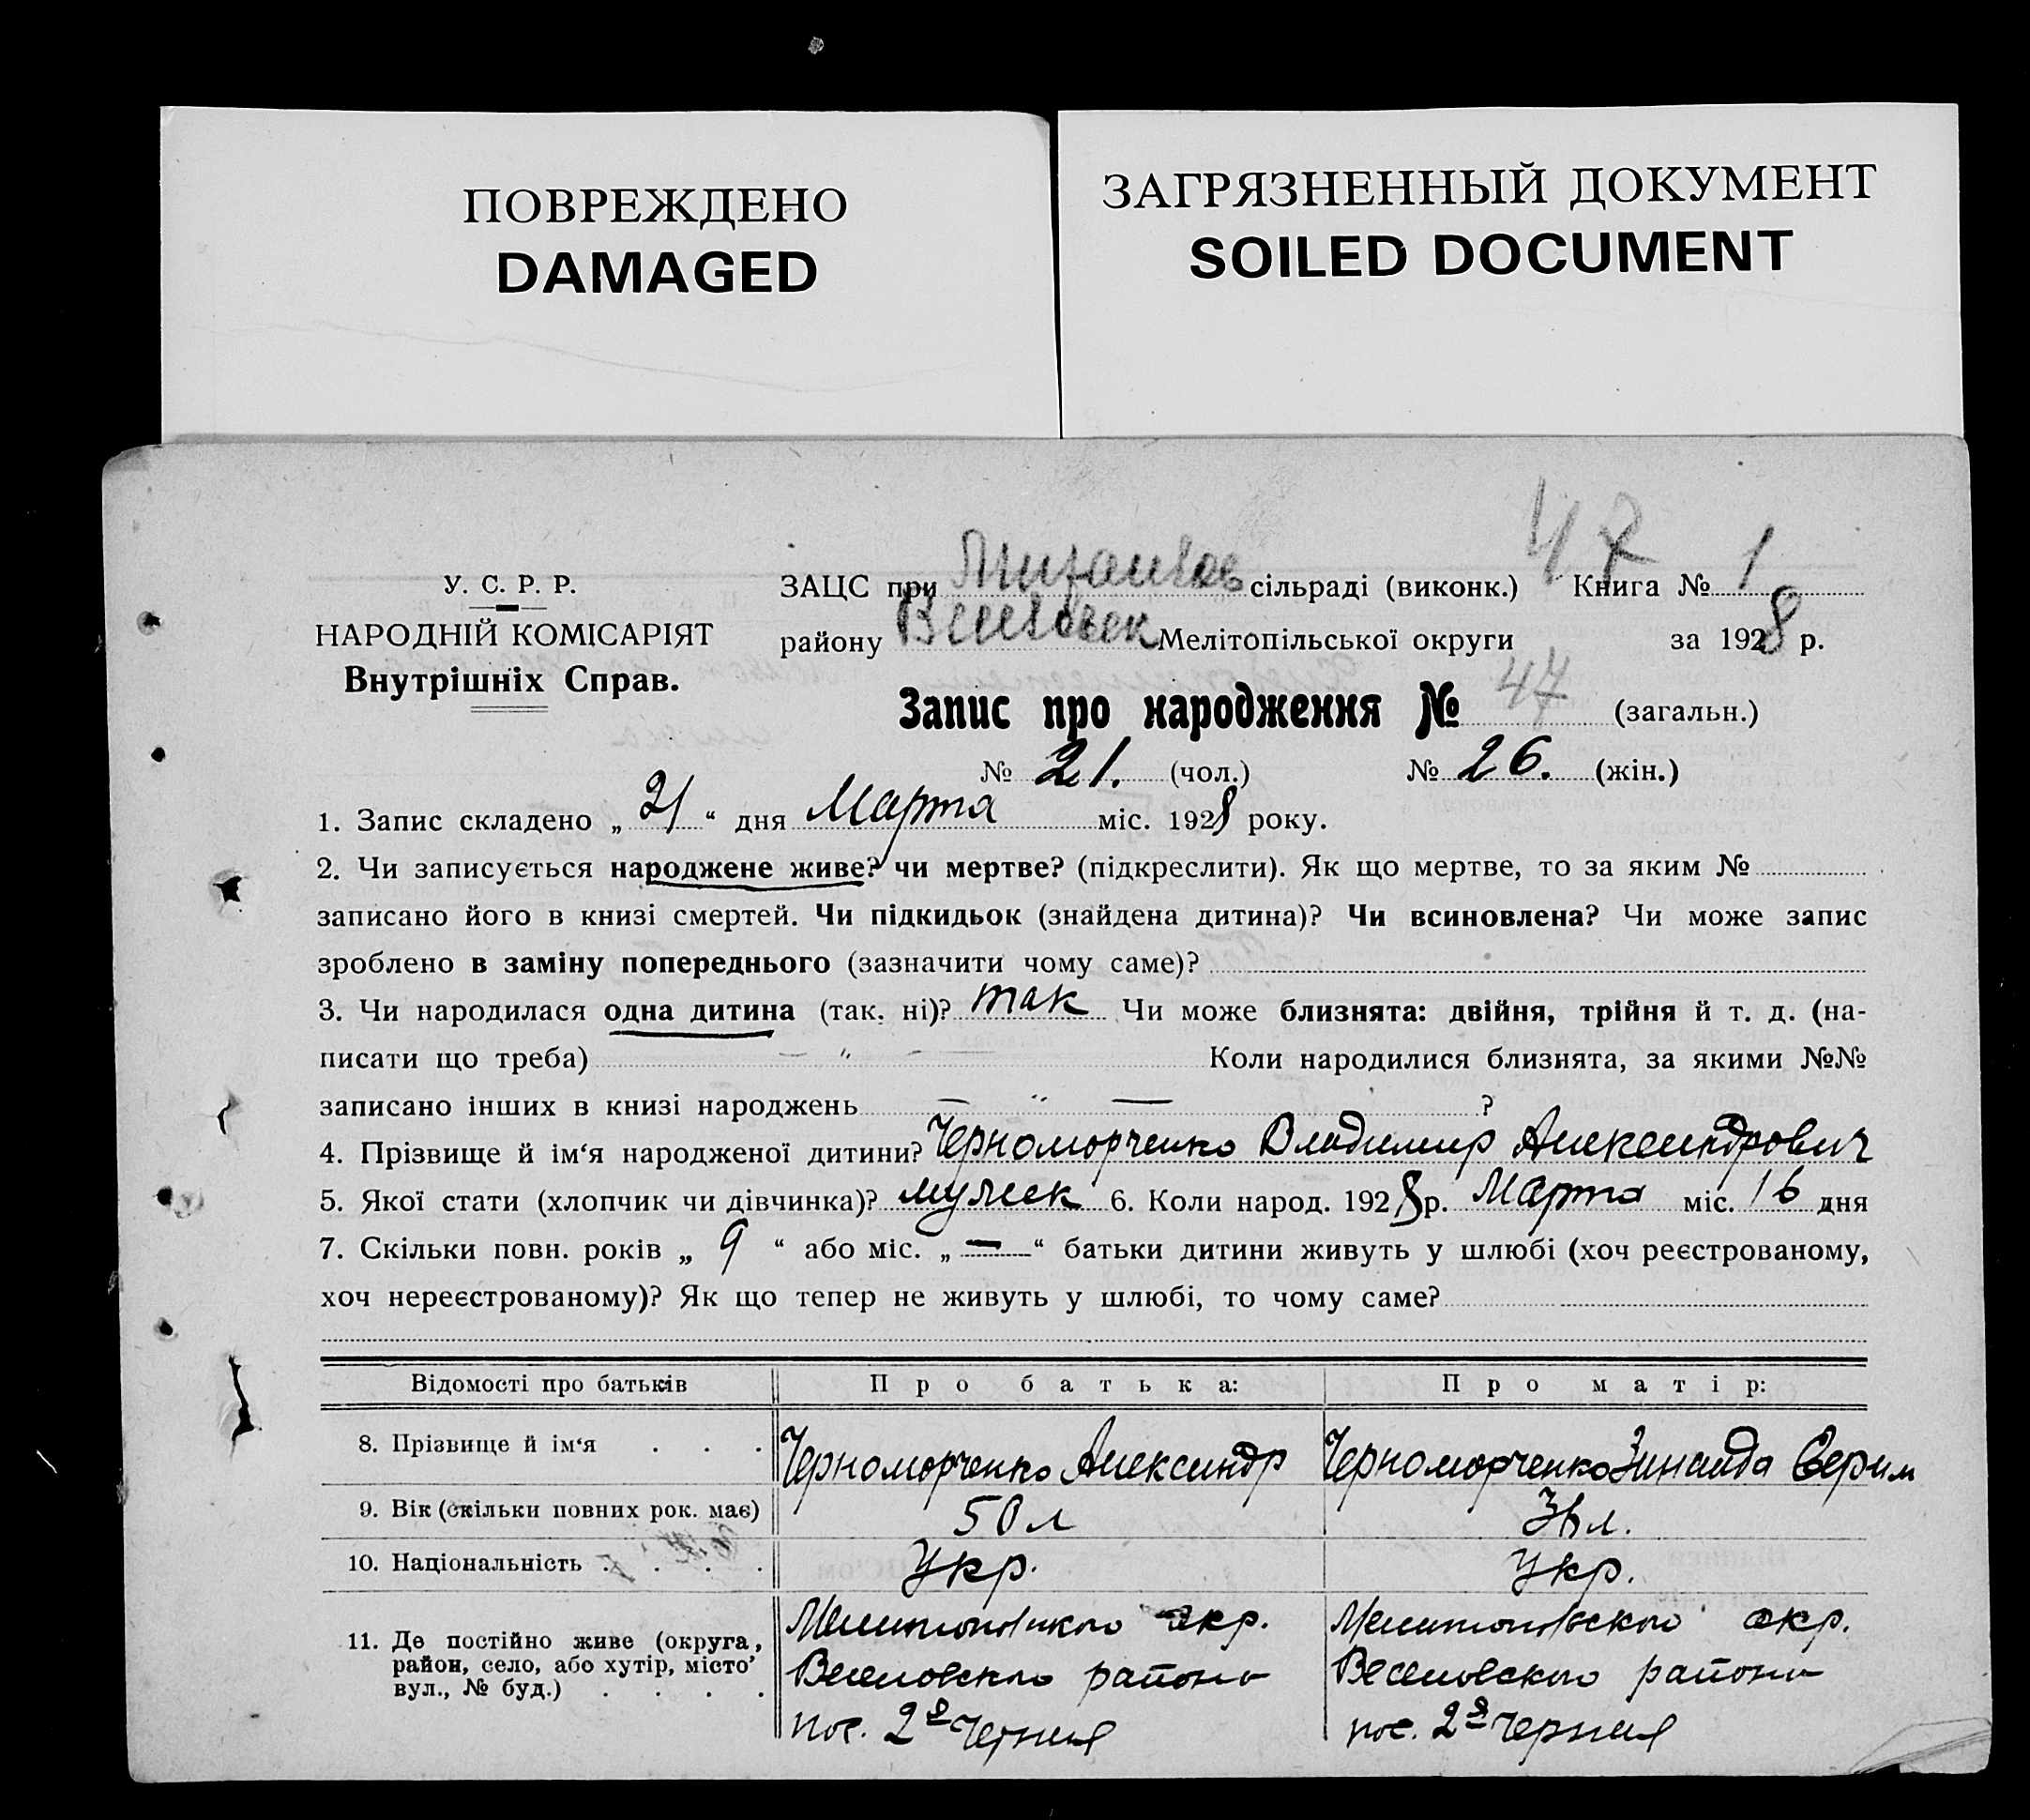 ПОВРЕЖДЕНО
DAMAGED
ЗАГРЯЗНЕННЫЙ ДОКУМЕНТ
SOILED DOCUMENT
47
У. С. Р. Р.
НАРОДНІЙ КОМІСАРІЯТ
Внутрішніх Справ.
ЗАЦС при сільраді (виконк.) Книга № 1
району Веселовск Мелітопільської округи за 1928 р.
Запис про народження № 47 (загальн.)
№ 21. (чол.) № 26. (жін.)
1. Запис складено „ 21 “ дня Марта міс. 1928 року.
2. Чи записується народжене живе? чи мертве? (підкреслити). Як що мертве, то за яким №
записано його в книзі смертей. Чи підкидьок (знайдена дитина)? Чи всиновлена? Чи може запис
зроблено в заміну попереднього (зазначити чому саме)?
3. Чи народилася одна дитина (так. ні)? так Чи може близнята: двійня, трійня й т. д. (на-
писати що треба) — „ — Коли народилися близнята, за якими №№
записано інших в книзі народжень — „ — ?
4. Прізвище й ім‘я народженої дитини? Черноморченко Владимир Александрович
5. Якої стати (хлопчик чи дівчинка)? мужск 6. Коли народ. 1928 р. Марта міс. 16 дня
7. Скільки повн. років „ 9 “ або міс. „ — “ батьки дитини живуть у шлюбі (хоч реєстрованому,
хоч нереєстрованому)? Як що тепер не живуть у шлюбі, то чому саме?
Відомості про батьків Про батька: Про матір:
8. Прізвище й ім‘я . . . Черноморченко Александр Черноморченко Зинаида
9. Вік (скільки повних рок. має) 50 л 36 л.
10. Національність . . . . Укр. Укр.
11. Де постійно живе (округа, район, село, або хутір, місто’ вул., № буд.) . . . .
Мелитопольского окр. Мелитопольского окр.
Веселовского района Веселовского района
пос. 2й пос. 2й